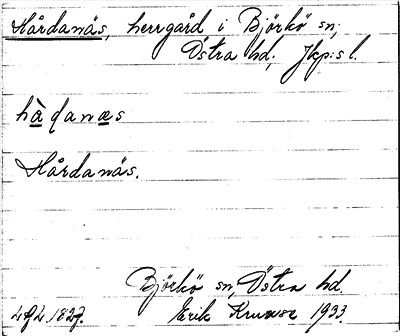 Hårdanäs, herrgård i Björkö sn,
Östra hd, Jkp:s l.
hàḍanæs
Hårdanäs.
Björkö sn, Östra hd.
Erik Kruuse 1933